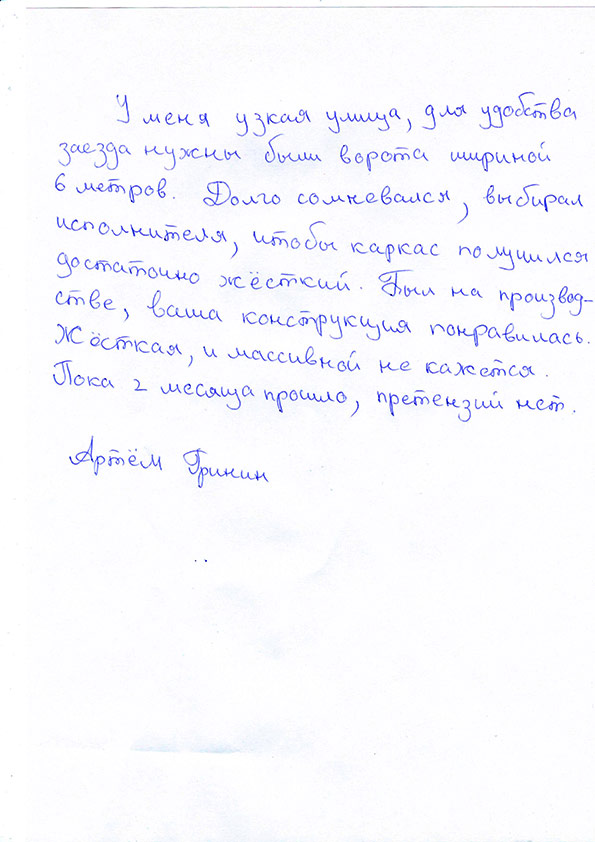 У меня узкая улица, для удобства
заезда нужны были ворота шириной
6 метров. Долго сомневался, выбирал
исполнителя, чтобы каркас получился
достаточно жёсткий. Был на производ-
стве, ваша конструкция понравилась.
Жёсткая, и массивной не кажется.
Пока 2 месяца прошло, претензий нет.
Артём Гринин